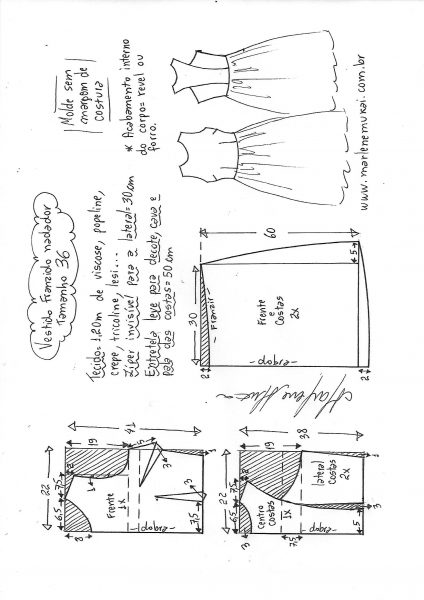 Vestido Franzido nadador
Tamanho 36
Tecido= 1,20m de viscose, popeline,
crepe, tricoline, lesi...
Ziper invisível para a lateral= 30 cm
Entretela leve para decote, cava e
pala das costas= 50 cm
Molde sem
margem de
costura
* Acabamento interno
do corpo= revel ou
forro.
www.marlenemukai.com.br
22
6,5
7,5
2
8
1
19
41
5
3
3
Frente
1x
dobra
7,5
1
22
6,5
7,5
2
3
19
38
Centro
costas
1x
lateral
Costas
2x
dobra
7,5
5
3
1
30
60
Franzir
2
Frente
e
Costas
2x
dobra
5
2